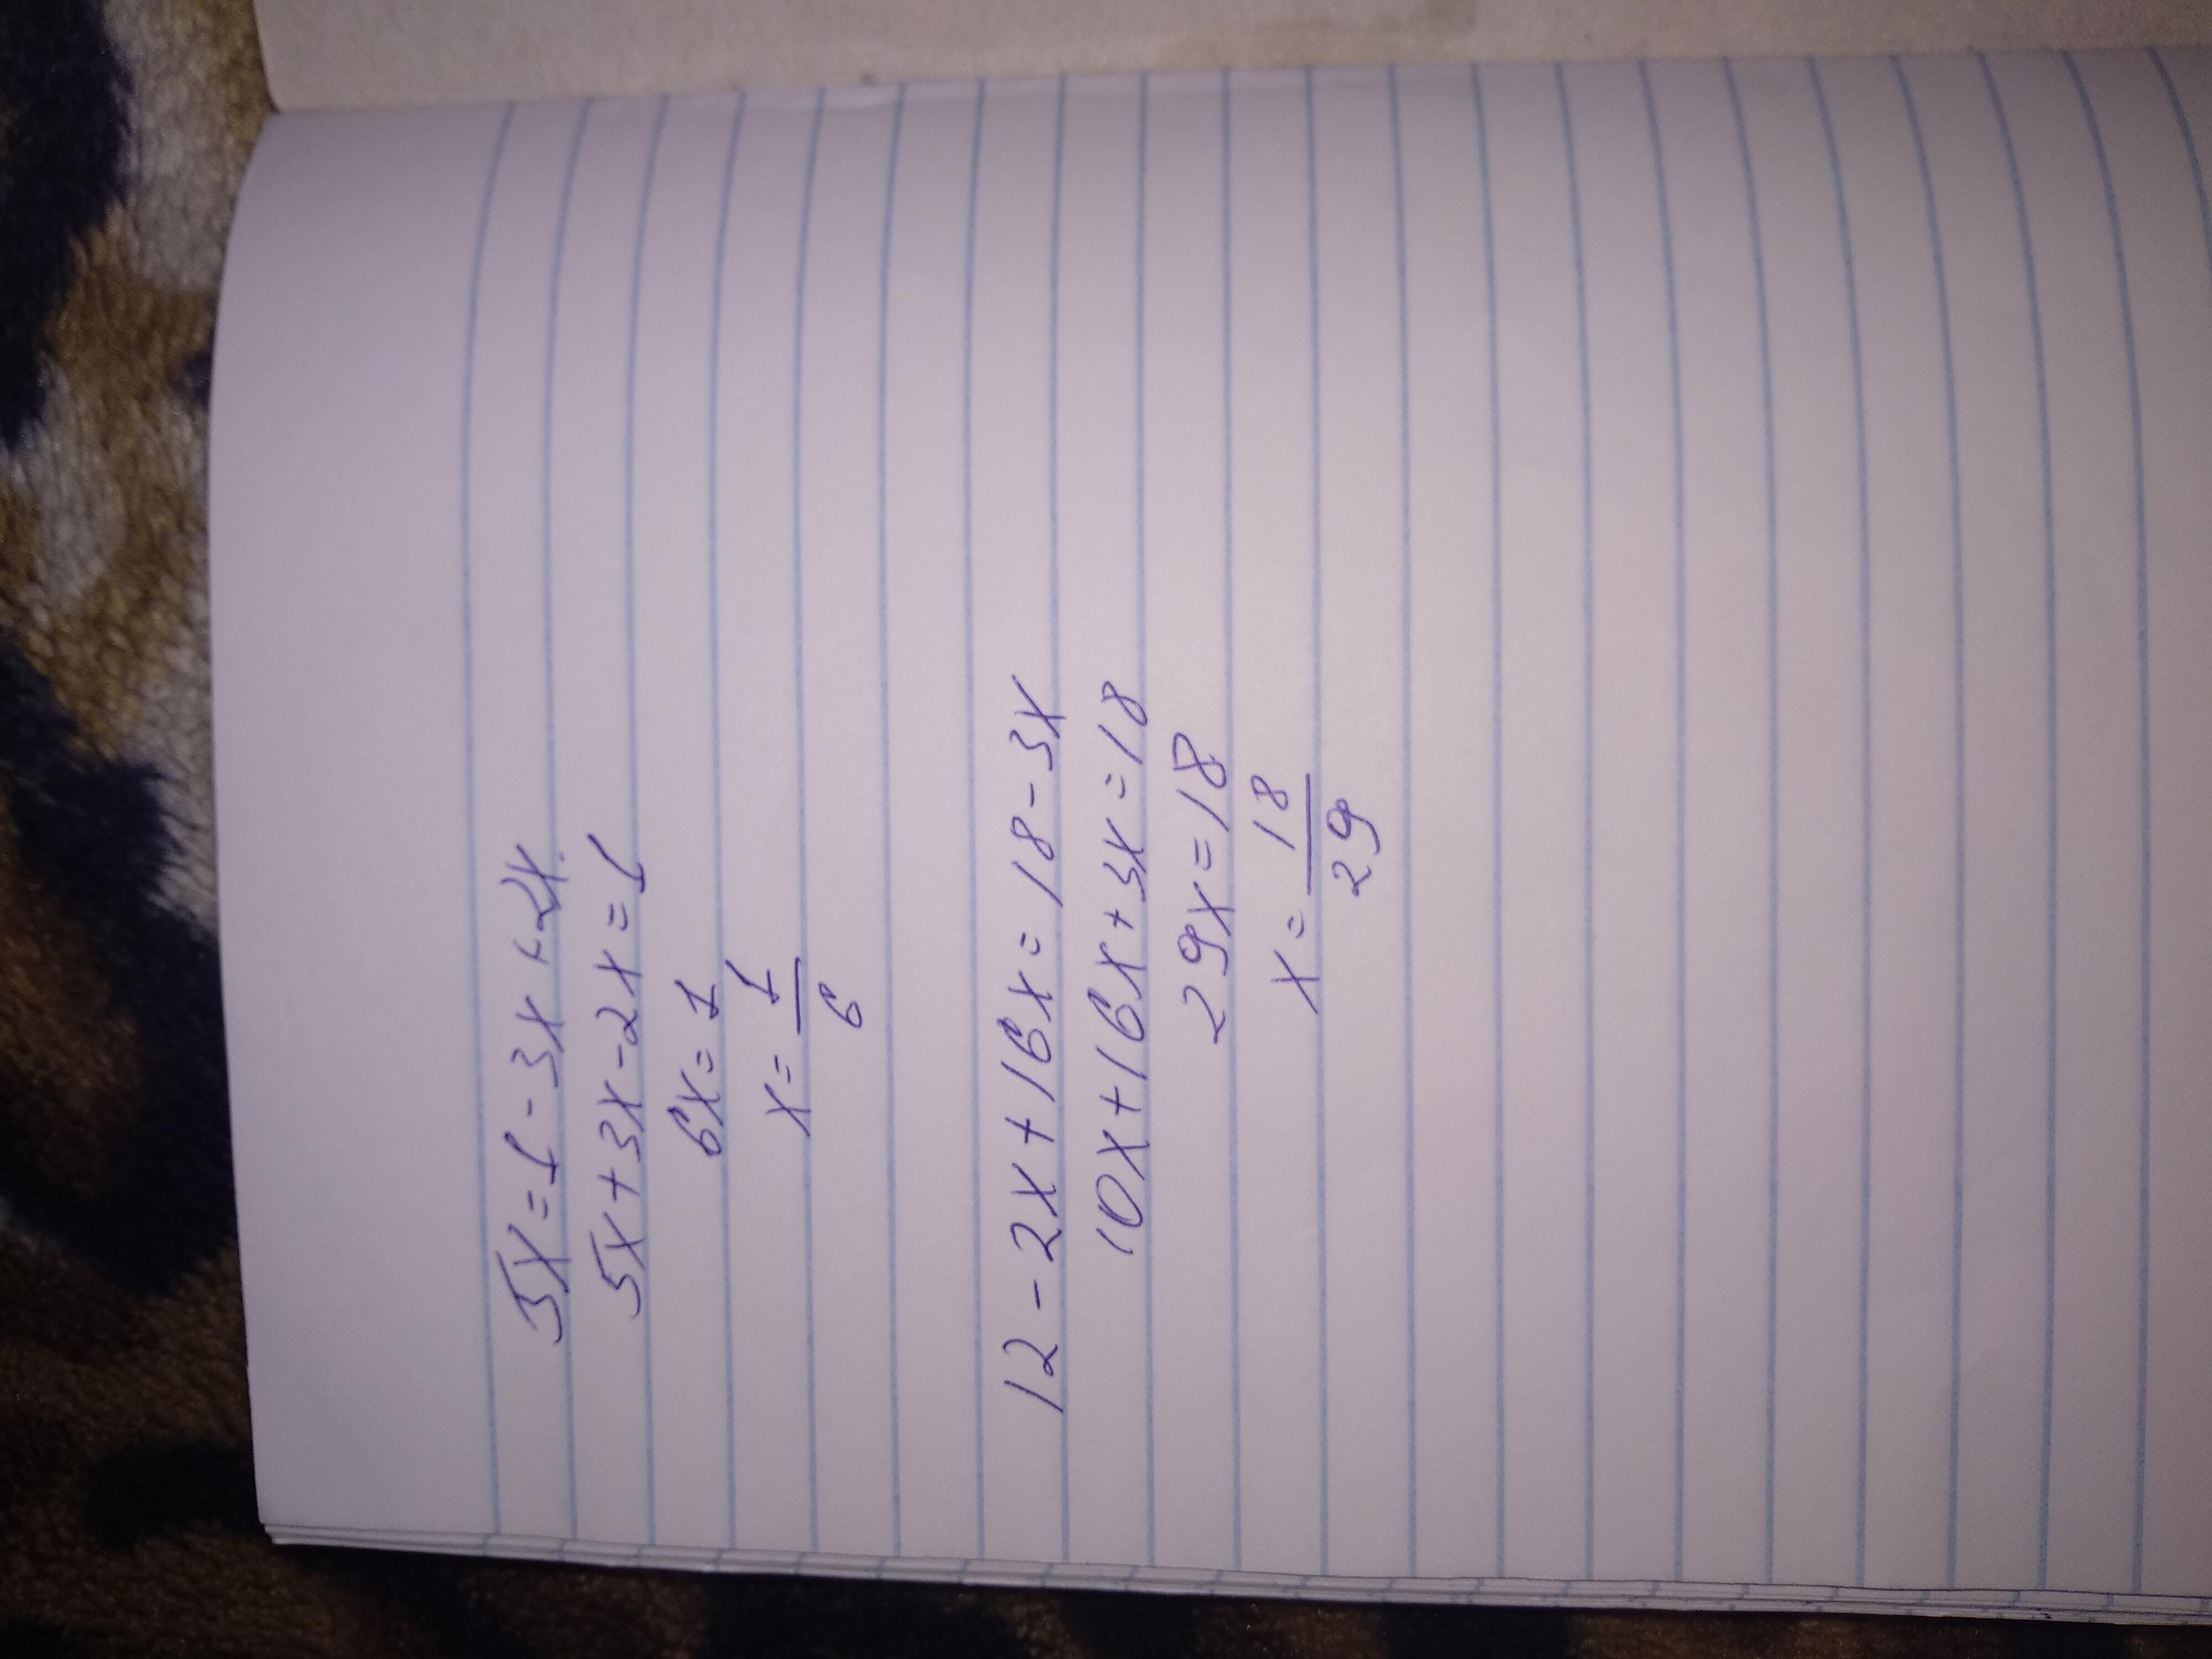 5x = 1 - 3x + 2x
5x + 3x - 2x = 1
6x = 1
x = 1/6
12 - 2x + 16x = 18 - 3x
10x + 16x + 3x = 18
29x = 18
x = 18/29